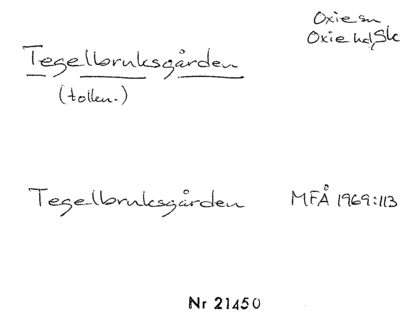 Oxie sn
Oxie hd, Sk
Tegelbruksgården
(tolkn.)
Tegelbruksgården MFÅ 1969:113
Nr 21450